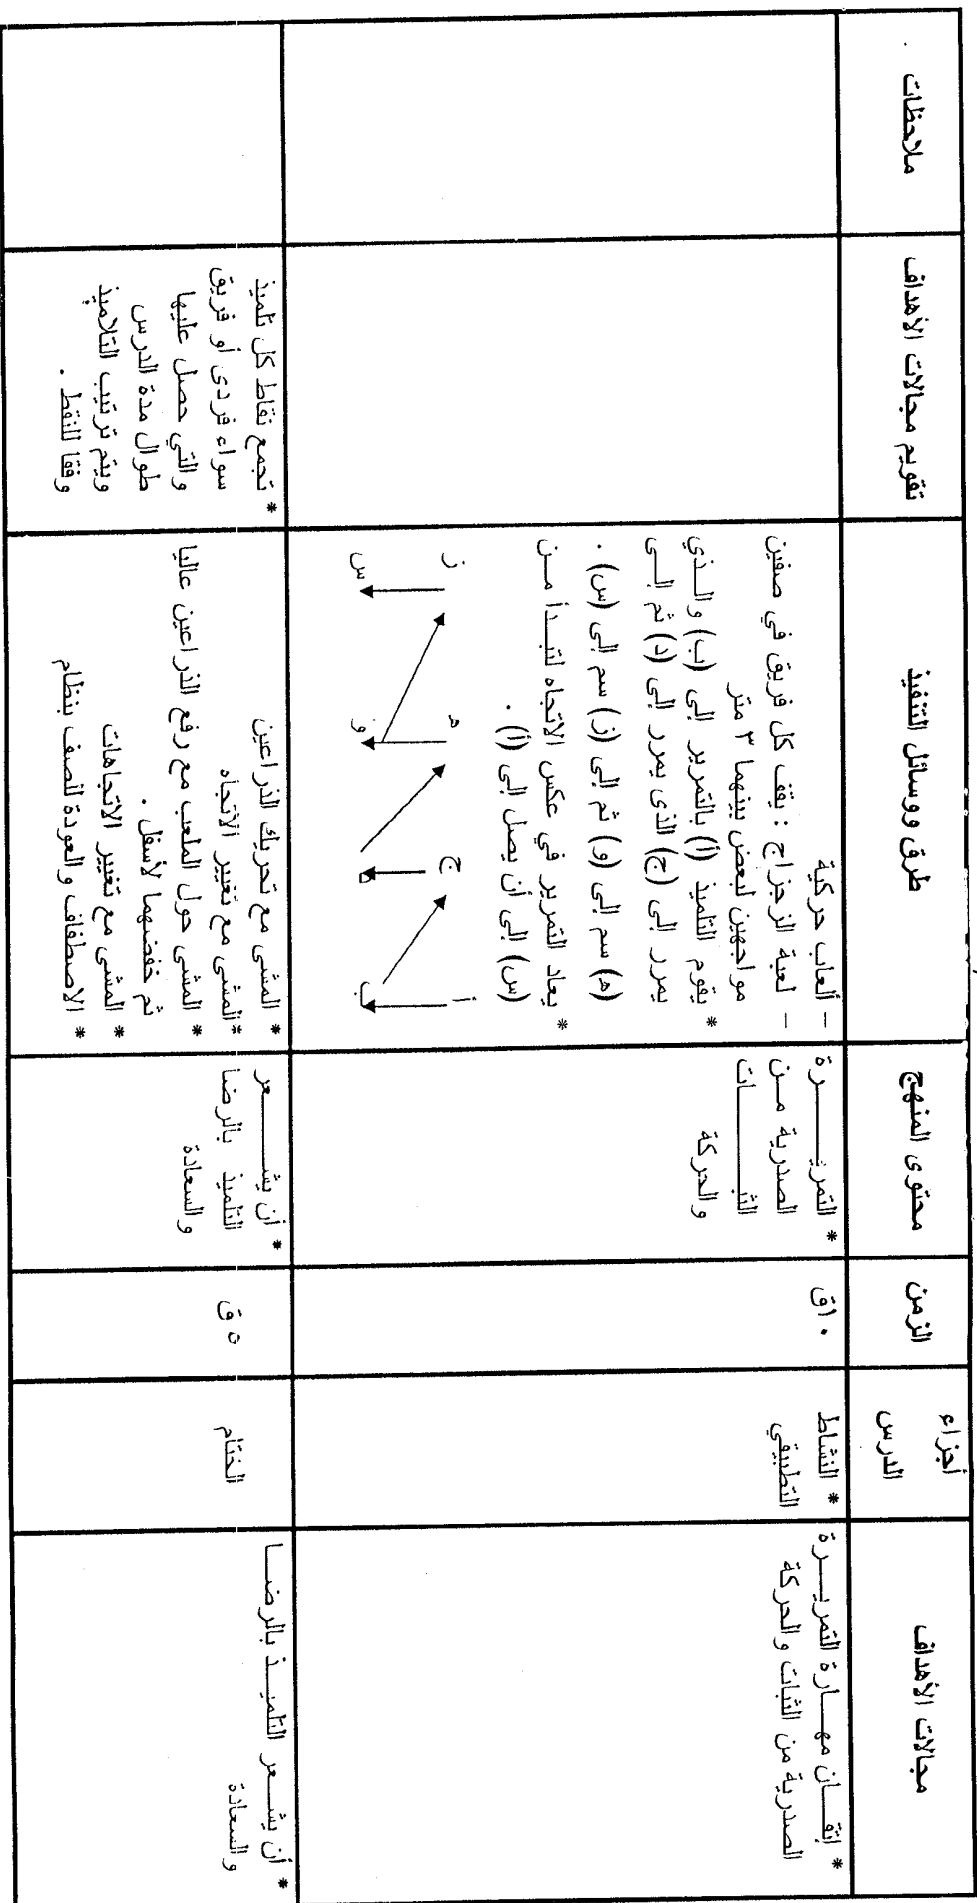 مجالات الأهداف
أجزاء
الدرس
الزمن
محتوى المنهج
طرق ووسائل التنفيذ
تقويم مجالات الأهداف
ملاحظات
* إتقــان مهــارة التمريــرة
الصدرية من الثبات والحركة
* النشاط
التطبيقي
١٠ق
* التمريــــــرة
الصدرية مــن
الثبــــــات
والحركة
– ألعاب حركية
– لعبة الزجزاج : يقف كل فريق في صفين
مواجهين لبعض بينهما ٣ متر
* يقوم التلميذ (أ) بالتمرير إلى (ب) والــذي
يمرر إلى (ج) الذى يمرر إلى (د) ثم إلــى
(هـ) سم إلى (و) ثم إلى (ز) سم إلى (س) .
* يعاد التمرير في عكس الاتجاه لتبــدأ مــن
(س) إلى أن يصل إلى (أ) .
أ
ج
هـ
ز
ب
و
س
* أن يشــعر التلميــذ بالرضــا
والسعادة
الختام
٥ ق
* أن يشــــــعر
التلميذ بالرضا
والسعادة
* المشى مع تحريك الذراعين
* المشى مع تغيير الاتجاه
* المشى حول الملعب مع رفع الذراعين عاليا
ثم خفضهما لأسفل .
* المشى مع تغيير الاتجاهات
* الاصطفاف والعودة للصف بنظام
* تجمع نقاط كل تلميذ
سواء فردى أو فريق
والتي حصل عليها
طوال مدة الدرس
ويتم ترتيب التلاميذ
وفقا للنقط .